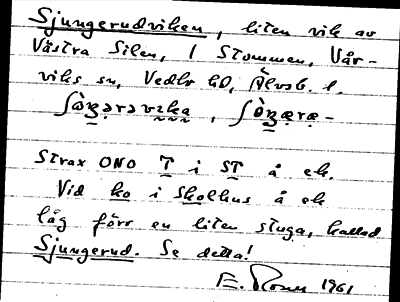 Sjungerudviken, liten vik av
Västra Silen, 1 Stommen, Vår-
viks sn, Vedbo hd, Älvsb. l.
Strax ONO T i ST å ek.
Vid ko i Skolhus å ek
låg förr en liten stuga, kallad
Sjungerud. Se detta!
E. 1961